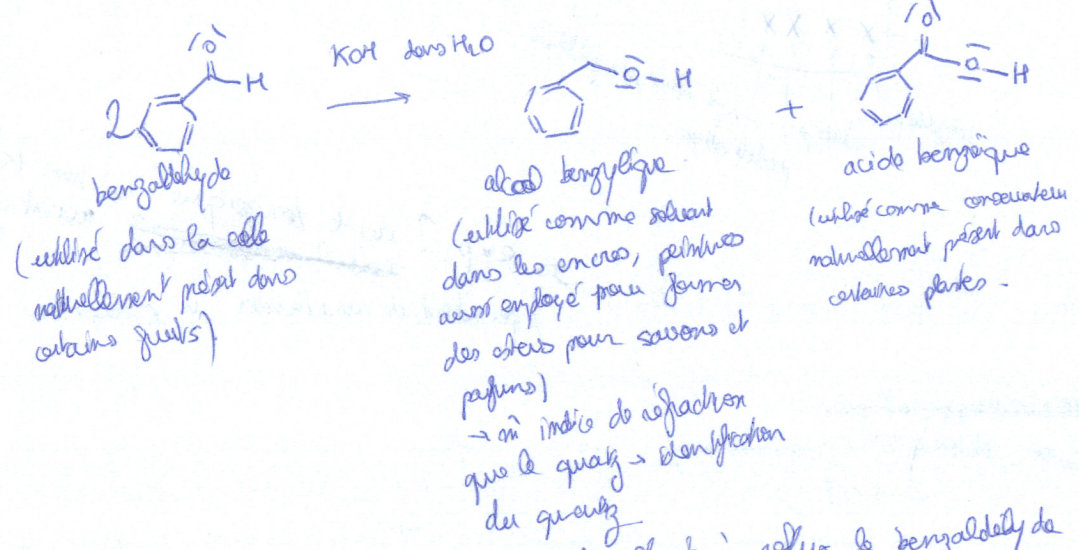 KOH dans H2O
2
O
H
O
H
+
O
O
H
benzaldéhyde
(utilisé dans la colle
naturellement présent dans
certains fruits)
alcool benzylique
(utilisé comme solvant
dans les encres, peintures
aussi employé pour former
des esters pour savons et
parfums)
→ m̂ indice de réfraction
que le quartz → identification
du quartz
acide benzoïque
(utilisé comme conservateur
naturellement présent dans
certaines plantes.
à reflux le benzaldéhyde